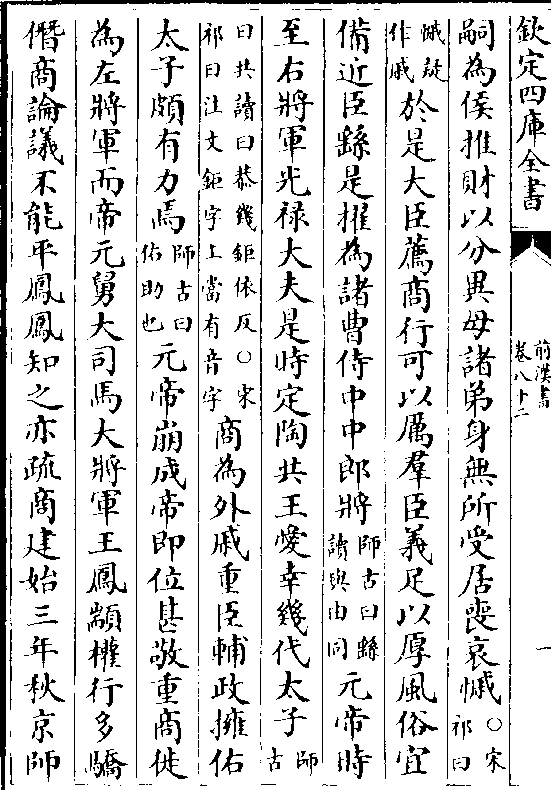 欽定四庫全書
前漢書
卷八十二
一
嗣為侯推財以分異母諸弟身無所受居喪哀慽○宋祁曰
慽疑作戚於是大臣薦商行可以厲羣臣義足以厚風俗宜
備近臣繇是擢為諸曹侍中中郎將師古曰繇讀與由同元帝時
至右將軍光禄大夫是時定陶共王愛幸幾代太子師古
曰共讀曰恭幾鉅依反○宋祁曰注文鉅字上當有音字商為外戚重臣輔政擁佑
太子頗有力焉師古曰佑助也元帝崩成帝即位甚敬重商徙
為左將軍而帝元舅大司馬大將軍王鳳顓權行多驕
僭商論議不能平鳳鳳知之亦疏商建始三年秋京師